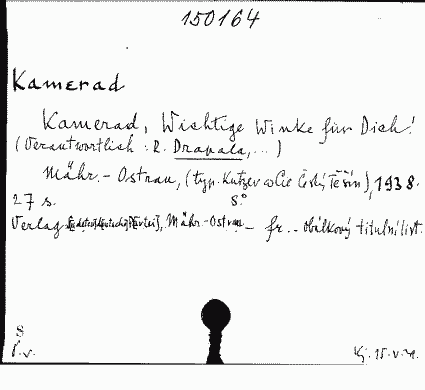 150164
Kamerad
Kamerad, Wichtige Winke für Dich!
(Verantwortlich: R. Drapala, ... )
Mähr.-Ostrau, (typ. Kutzer a Cie Český Těšín), 1938.
27 s. 8°
Verlag [Sudetendeutsche Partei], Mähr.-Ostrau - fr. - obálkový titulní list.
8
Kj. 15.V.